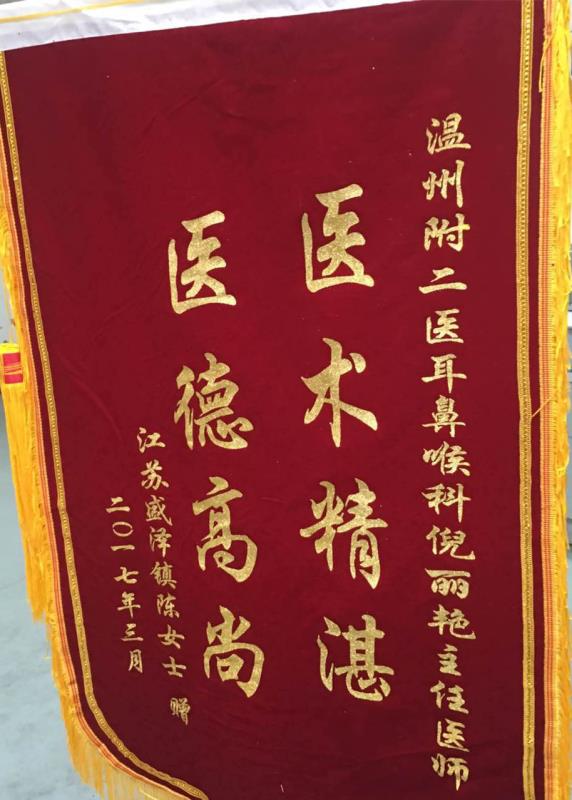 温州附二医耳鼻喉科倪丽艳主任医师
医术精湛
医德高尚
江苏盛泽镇陈女士 赠
二〇一七年三月